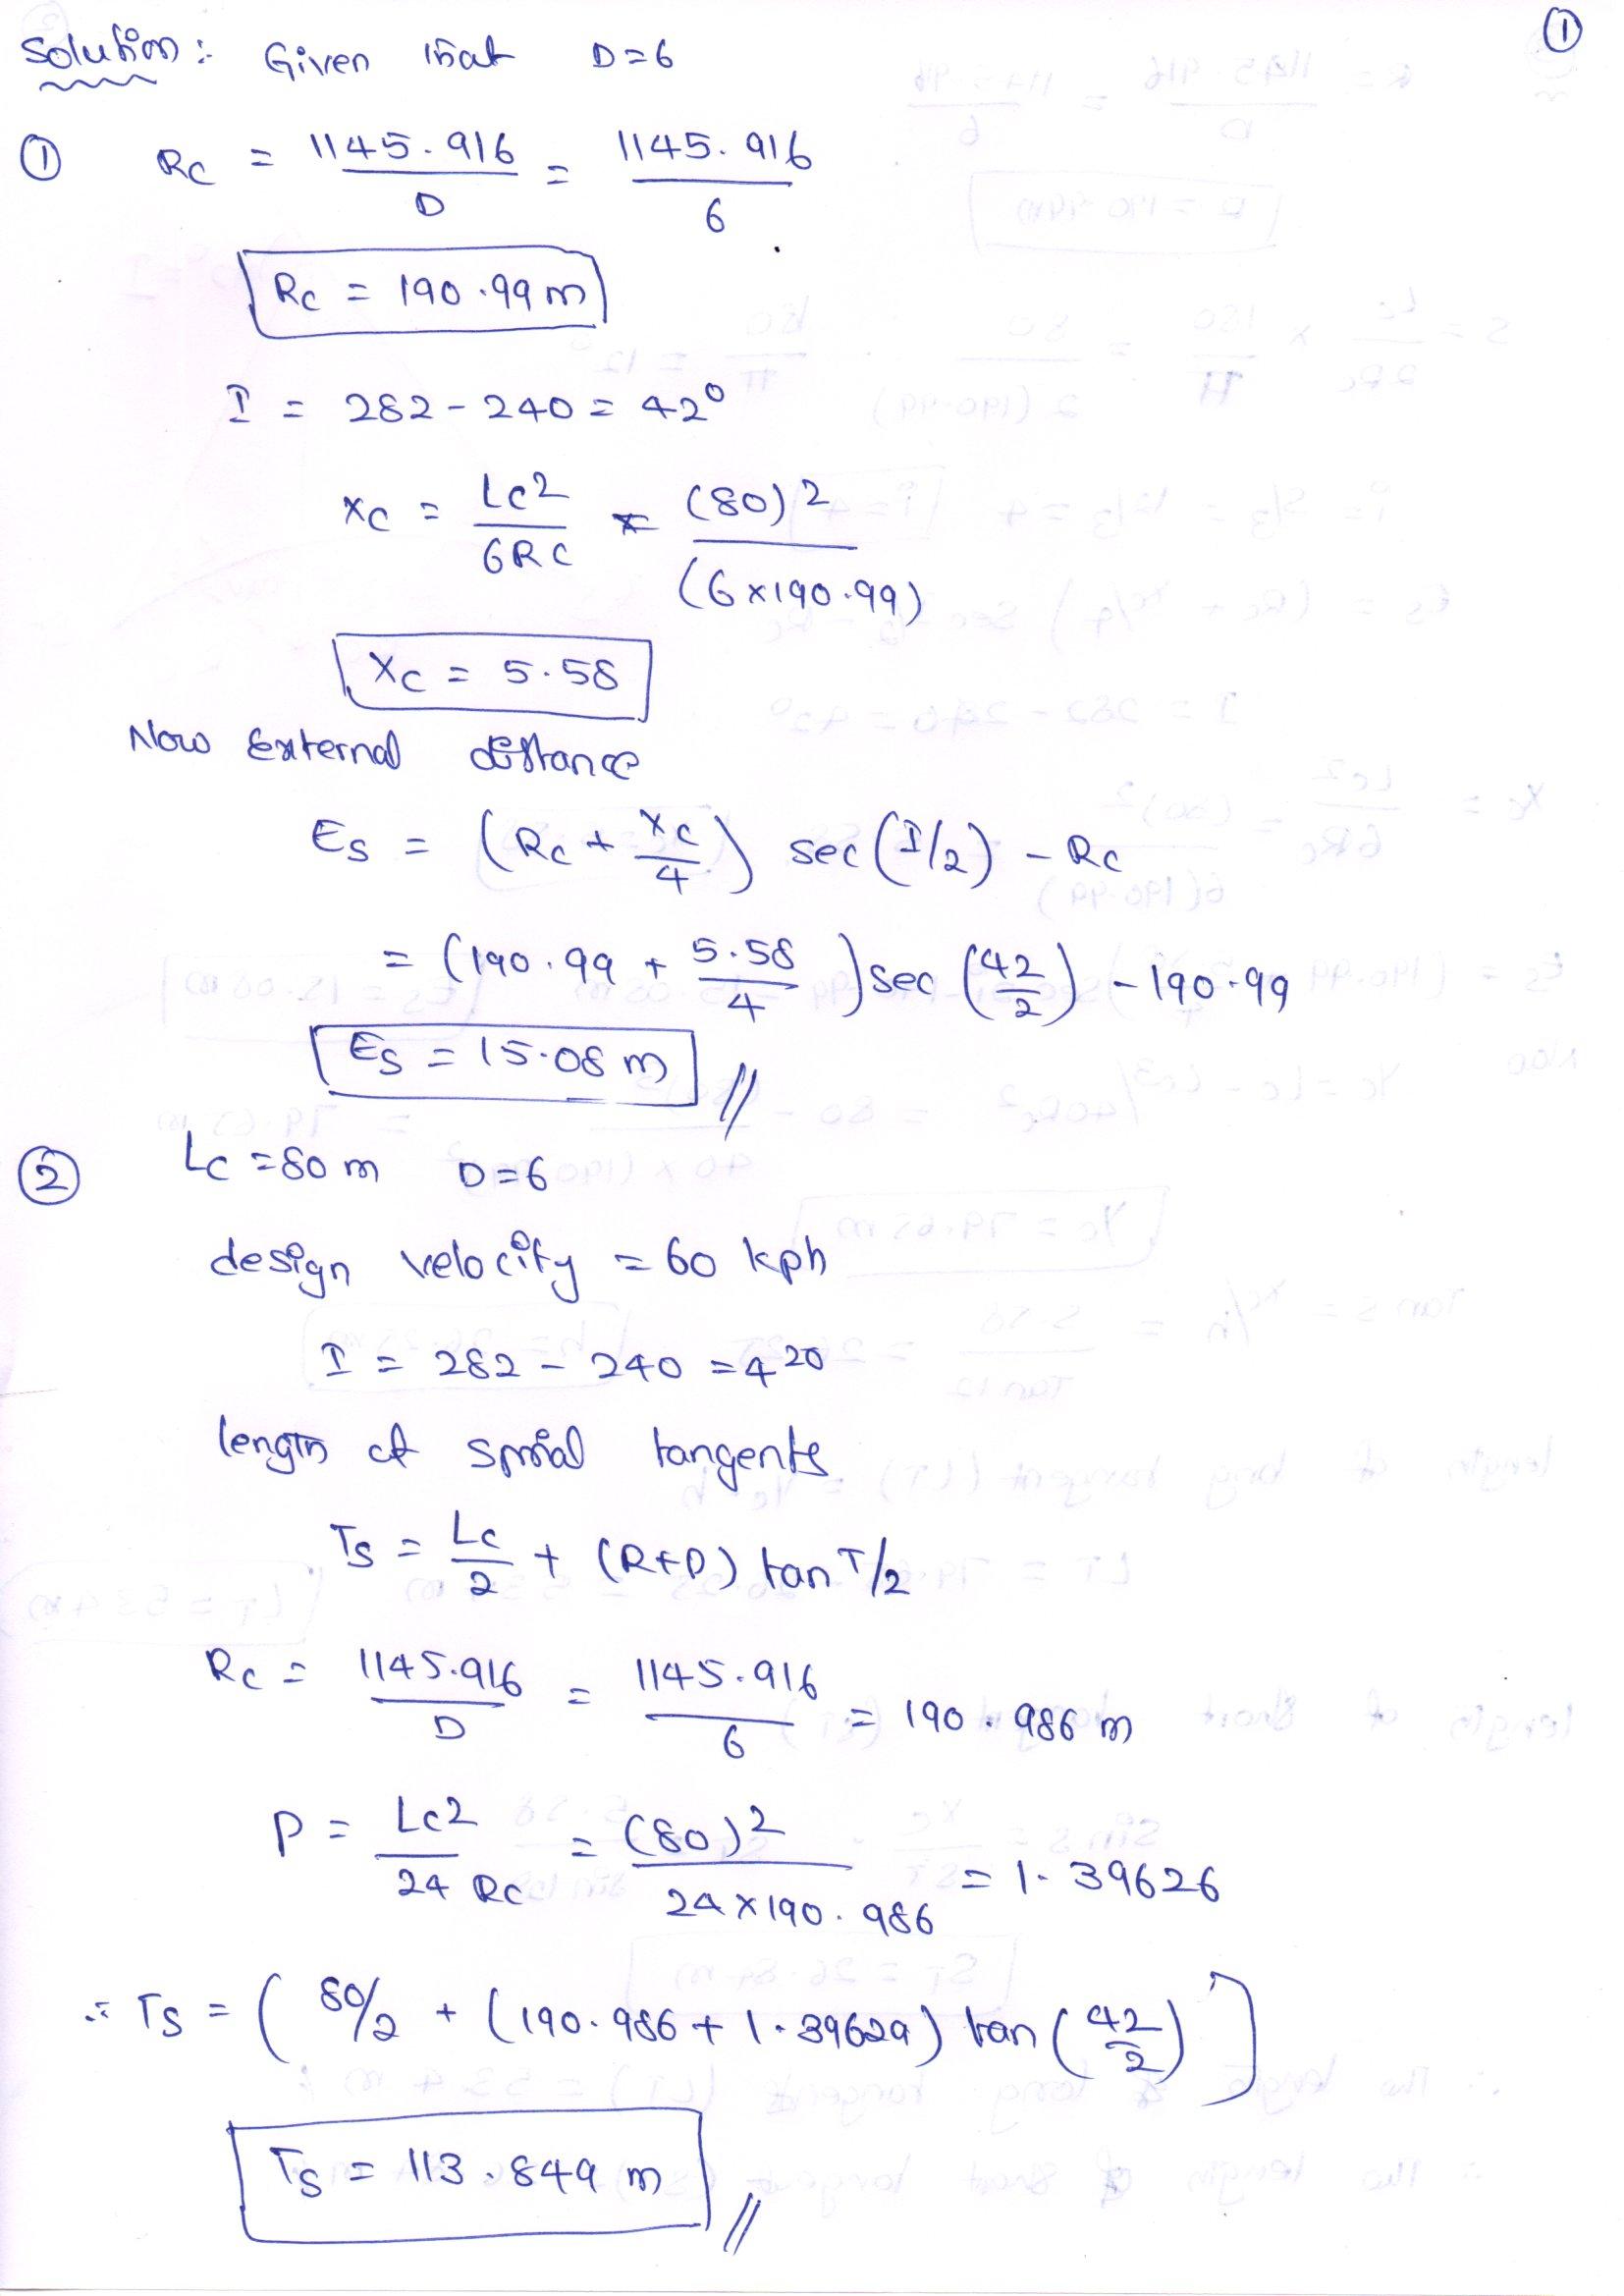 ①
Solution : Given that D=6
① Rc = 1145.916 / D = 1145.916 / 6
Rc = 190.99 m
I = 282 - 240 = 42°
Xc = Lc2 / 6RC = (80)2 / (6×190.99)
Xc = 5.58
Now External distance
Es = (Rc + Xc/4) sec (I/2) - Rc
= (190.99 + 5.58/4) sec (42/2) - 190.99
Es = 15.08 m //
② Lc = 80 m D=6
design velocity = 60 kph
I = 282 - 240 = 420
length of spiral tangents
Ts = Lc/2 + (R+P) tan I/2
Rc = 1145.916 / D = 1145.916 / 6 = 190.986 m
P = Lc2 / 24 Rc = (80)2 / 24×190.986 = 1.39626
∴ Ts = ( 80/2 + (190.986 + 1.39629) tan (42/2) ]
Ts = 113.849 m //